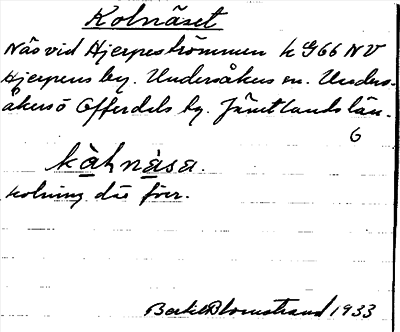 Kolnäset
Näs vid Hjerpeströmmen k G66 NV
Hjerpens by. Undersåkers sn. Unders-
åkers o Offerdals tg. Jämtlands län.
6
kàhnàsa.
Kolning där förr.
Bertil Blomstrand 1933